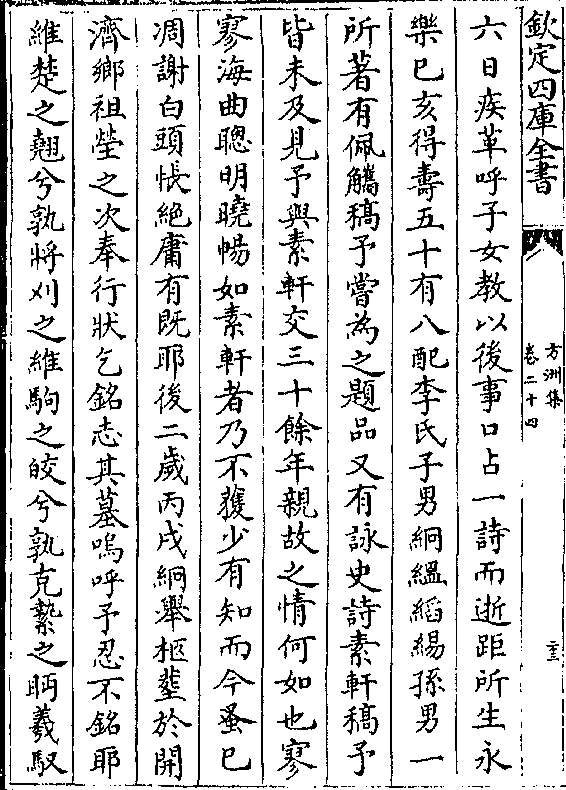 欽定四庫全書
方洲集
卷二十四
二十三
六日疾革呼子女教以後事口占一詩而逝距所生永
樂已亥得壽五十有八配李氏子男絅縕縚緆孫男一
所著有佩觿稿予嘗為之題品又有詠史詩素軒稿予
皆未及見予與素軒交三十餘年親故之情何如也寥
寥海曲聰明曉暢如素軒者乃不獲少有知而今蚤已
凋謝白頭悵絶庸有既耶後二歲丙戌絅舉柩塟於開
濟鄉祖塋之次奉行狀乞銘志其墓嗚呼予忍不銘耶
維楚之翹兮孰將刈之維駒之皎兮孰克縶之眄羲馭